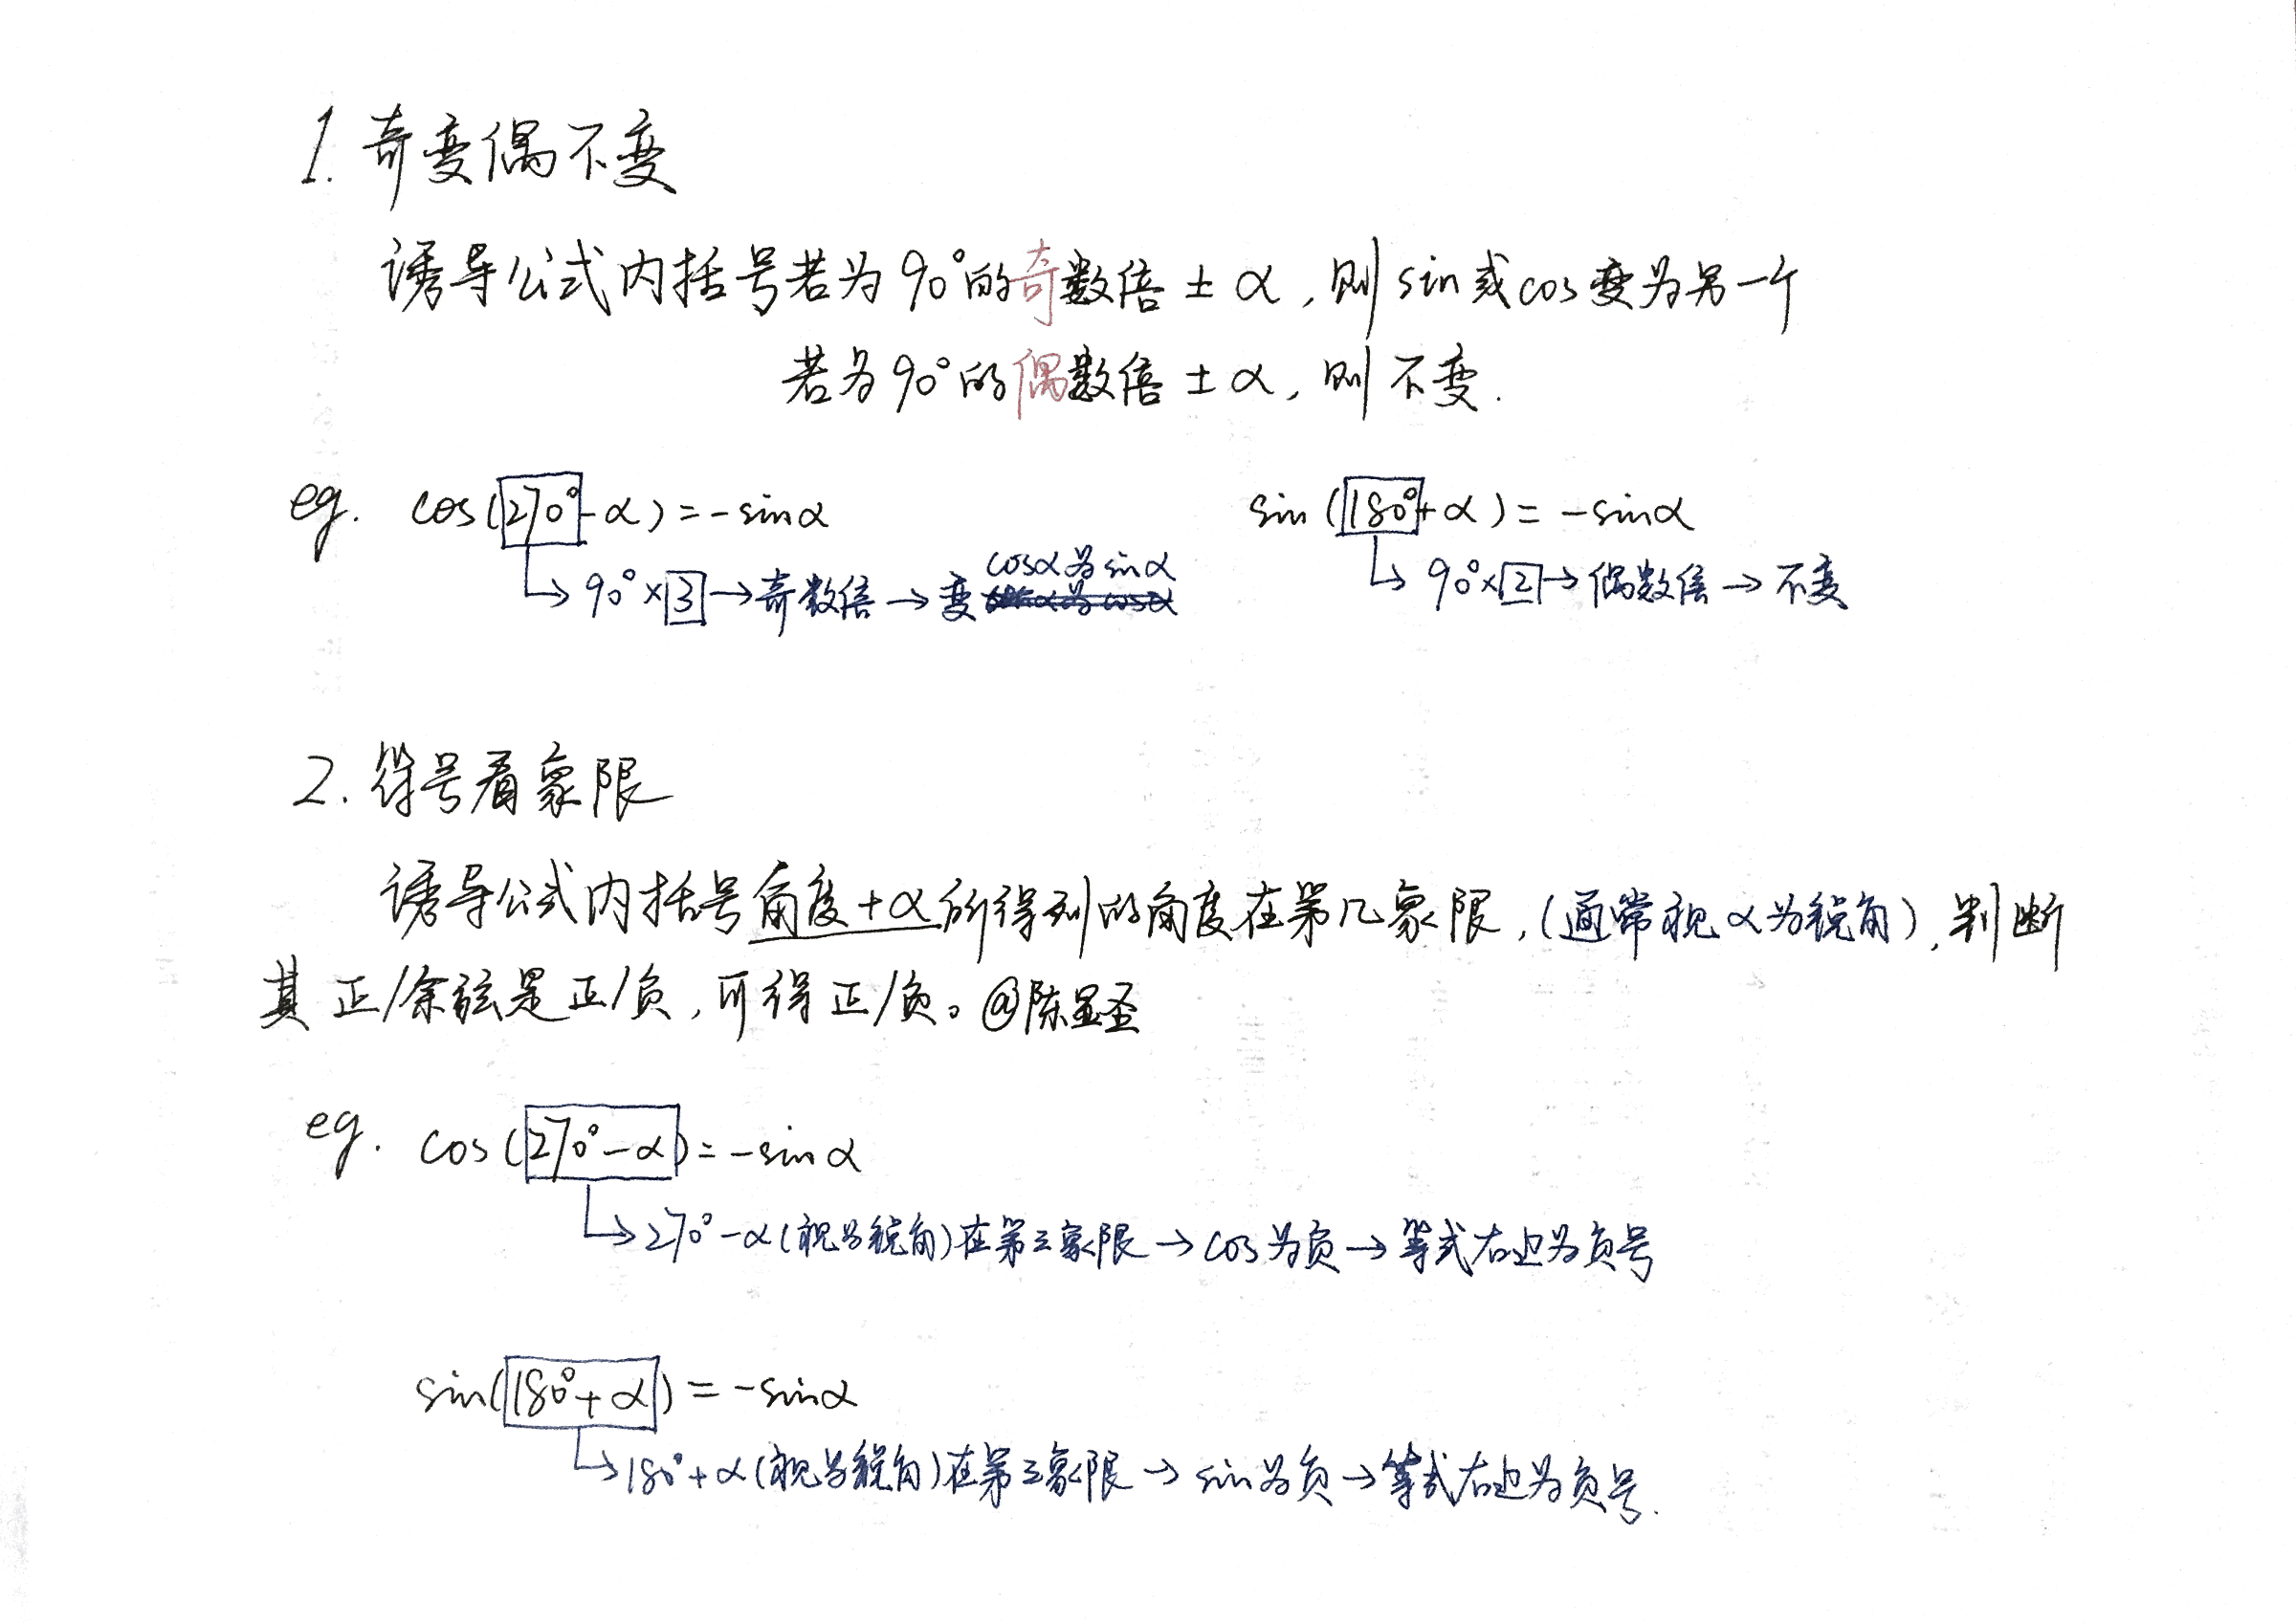 1. 奇变偶不变
诱导公式内括号若为90°的奇数倍 ± α, 则sin或cos变为另一个
若为90°的偶数倍 ± α, 则不变.
eg. cos(270°-α)=-sinα
→90°×3→奇数倍→变 cosα为sinα
sin(180°+α)=-sinα
→90°×2→偶数倍→不变
2. 符号看象限
诱导公式内括号角度+α所得到的角度在第几象限, (通常视α为锐角), 判断
其正/余弦是正/负, 可得正/负。@陈显圣
eg. cos(270°-α)=-sinα
→270°-α(视为锐角)在第三象限→cos为负→等式右边为负号
sin(180°+α)=-sinα
→180°+α(视为锐角)在第三象限→sin为负→等式右边为负号.